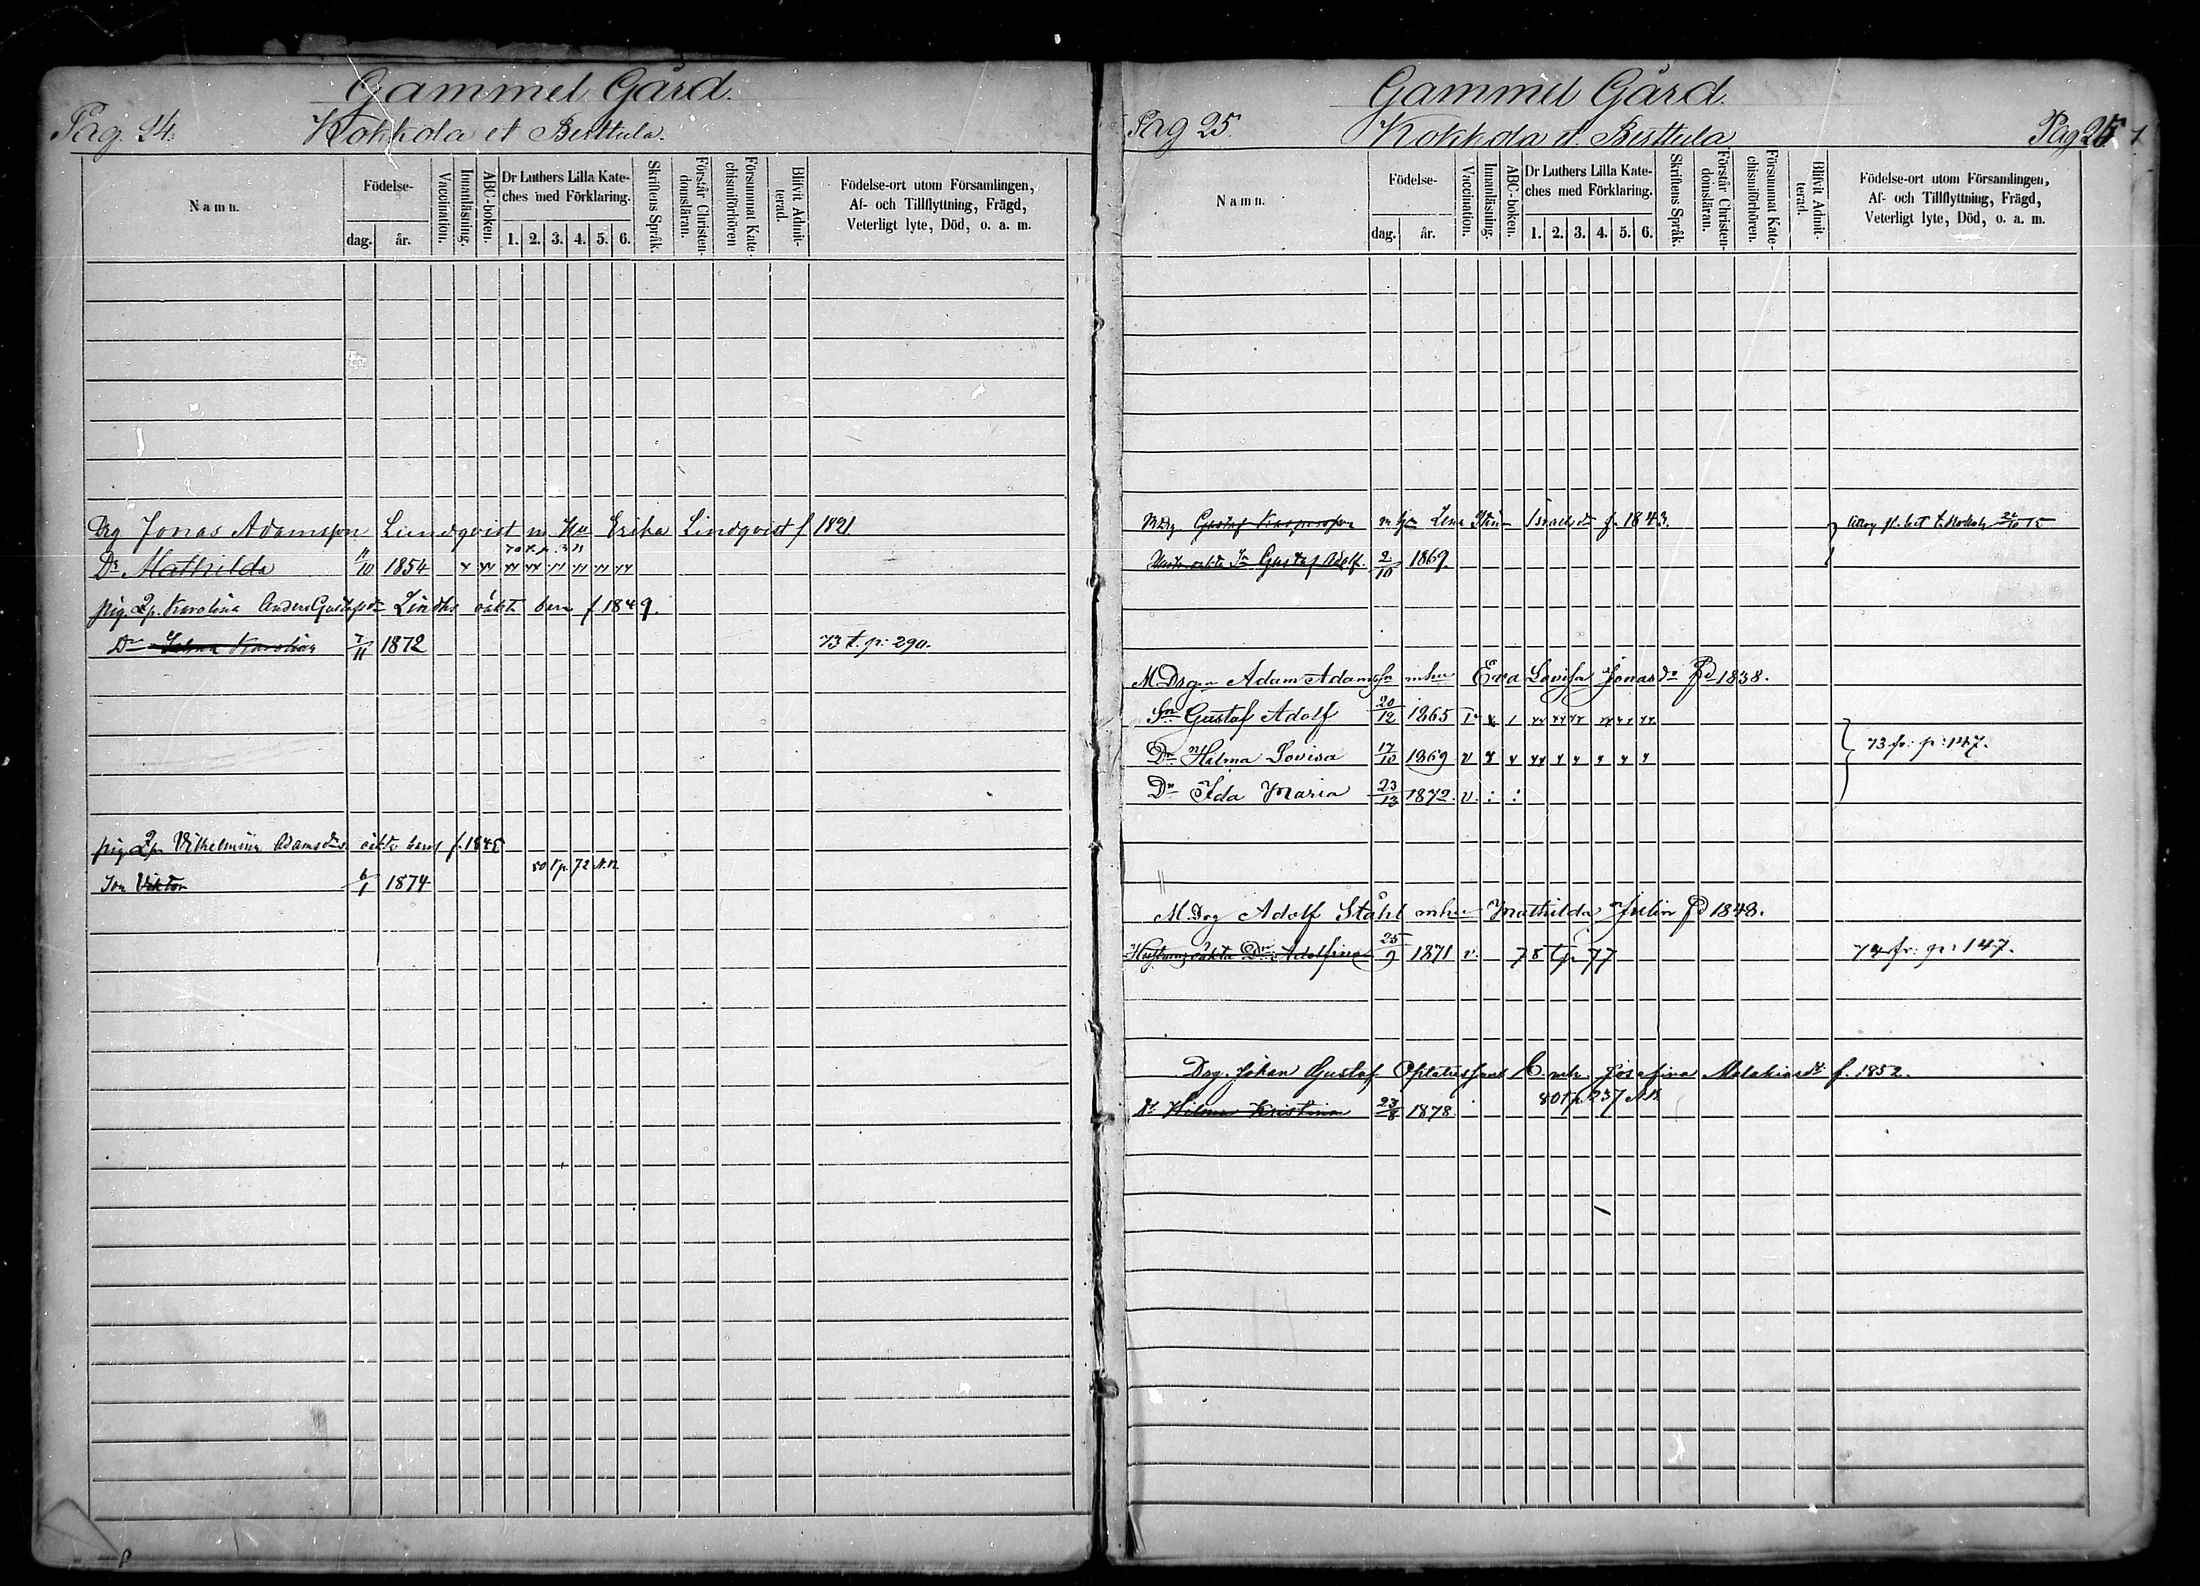 Gammel Gård.
Pag. 24. Kokkola et Berttula.
Namn.
Födelse-
dag.
år.
Vaccination.
Innanläsning.
ABC-boken.
Dr Luthers Lilla Kate-
ches med Förklaring.
1. 2. 3. 4. 5. 6.
Skriftens Språk.
Förstår Christen-
domsläran.
Försummat Kate-
chismiförhören
Blifvit Admit-
terad.
Födelse-ort utom Församlingen,
Af- och Tillflyttning, Frägd,
Veterligt lyte, Död, o. a. m.
Drg Jonas Adamsson Lindqvist m Hu Erika Lindqvist f 1821.
Dr Mathilda 11/10 1854
pig. Karolina Anders Gustafsdr oäkt barn f 1849.
Dr Selma Karolina 7/11 1872 73 t. p: 290.
pig. Vilhelmina Adamsdr oäkta barn f. 1845
80 t p. 72 N.B.
Son Viktor 6/1 1874
Gammel Gård.
Pag 25 Kokkola et. Berttula Pag 25
Namn.
Födelse-
dag.
år.
Vaccination.
Innanläsning.
ABC-boken.
Dr Luthers Lilla Kate-
ches med Förklaring.
1. 2. 3. 4. 5. 6.
Skriftens Språk.
Förstår Christen-
domsläran.
Försummat Kate-
chismiförhören.
Blifvit Admit-
terad.
Födelse-ort utom Församlingen,
Af- och Tillflyttning, Frägd,
Veterligt lyte, Död, o. a. m.
MDrg. Gustaf Kaspersson m hu Lena Stina Israelsdr f. 1843.
Gustaf Adolf. 2/10 1869.
M Drgen Adam Adamsson mhu Eva Lovisa Jonasdr fd 1838.
Sn Gustaf Adolf 20/12 1865
Dr Halma Lovisa 17/10 1869 v 73 fr: p: 147.
Dr Ida Maria 23/12 1872. v. : :
M. Drg Adolf Ståhl mhu Mathilda Julin fd 1848.
Hustruns oäkta Dr Adolfina 25/9 1871 v. 78 t p 77 74 fr: p: 147.
Drg. Johan Gustaf mh. Josefina Malakiasdr f. 1852.
80 t p. 237 N.B.
Dr Hilma Kristina 23/8 1878.